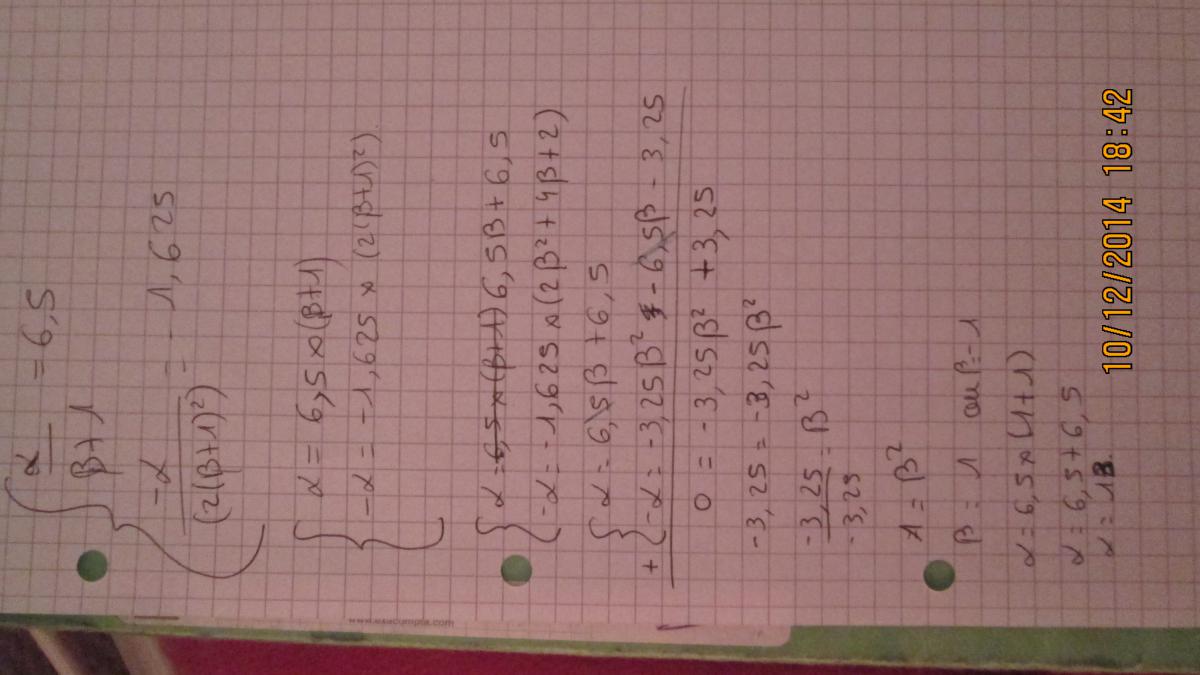 α/(β+1) = 6,5
-α/(2(β+1)²) = -1,625
α = 6,5 × (β+1)
-α = -1,625 × (2(β+1)²)
α = 6,5 × (β+1) 6,5β + 6,5
-α = -1,625 × (2β² + 4β + 2)
α = 6,5β + 6,5
+ -α = -3,25β² - 6,5β - 3,25
0 = -3,25β² + 3,25
-3,25 = -3,25β²
-3,25/-3,25 = β²
1 = β²
β = 1 ou β = -1
α = 6,5 × (1+1)
α = 6,5 + 6,5
α = 13
www.exacompta.com
10/12/2014 18:42